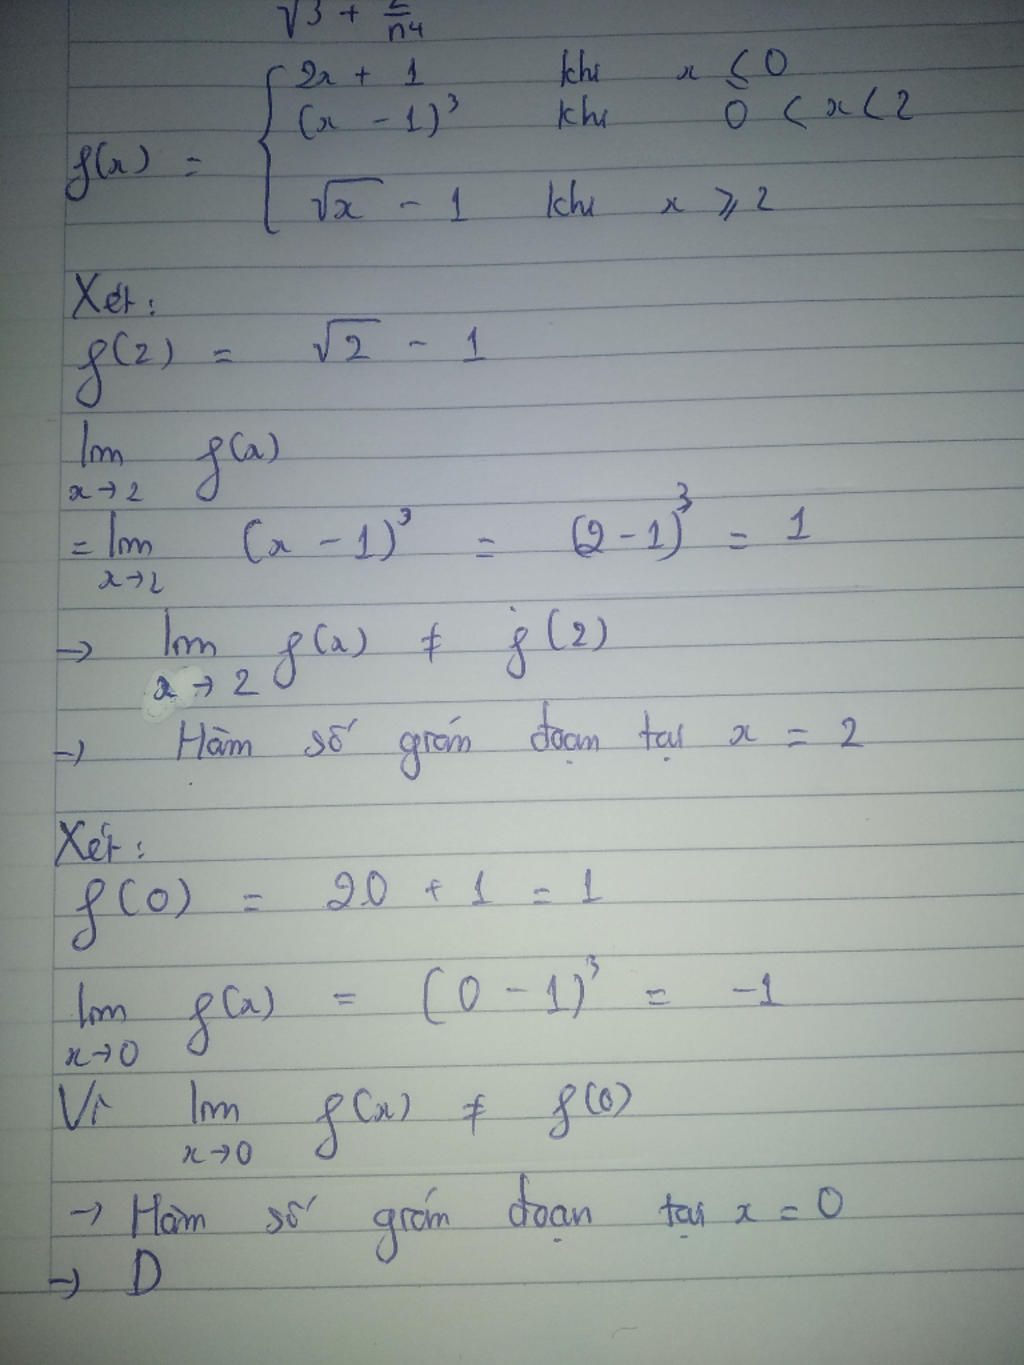 √3 + 2/n4
2x + 1 khi x ≤ 0
(x - 1)³ khi 0 < x < 2
f(x) =
√x - 1 khi x ⩾ 2
Xét:
f(2) = √2 - 1
lim f(x)
x→2
= lim (x - 1)³ = (2 - 1)³ = 1
x→2
→ lim f(x) ≠ f(2)
x → 2
→ Hàm số gián đoạn tại x = 2
Xét:
f(0) = 20 + 1 = 1
lim f(x) = (0 - 1)³ = -1
x→0
Vì lim f(x) ≠ f(0)
x→0
→ Hàm số gián đoạn tại x = 0
→ D